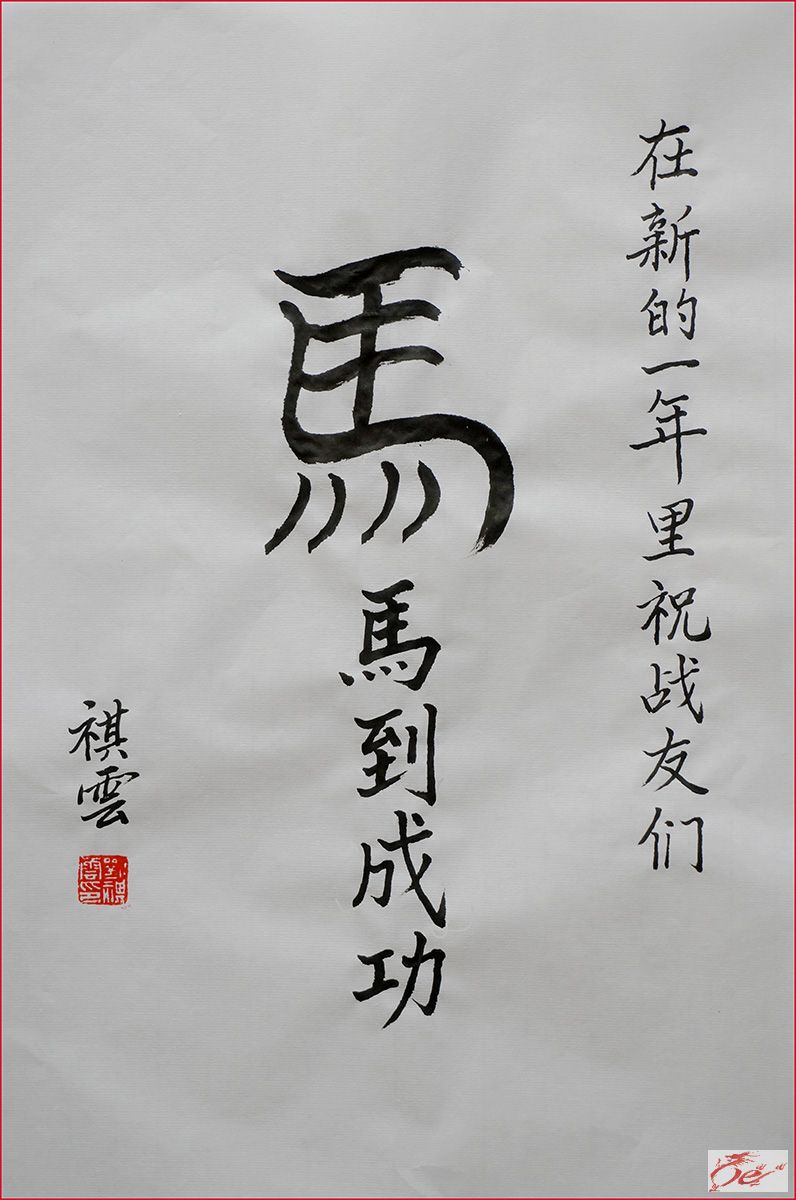 在新的一年里祝战友们
馬
馬到成功
祺雲